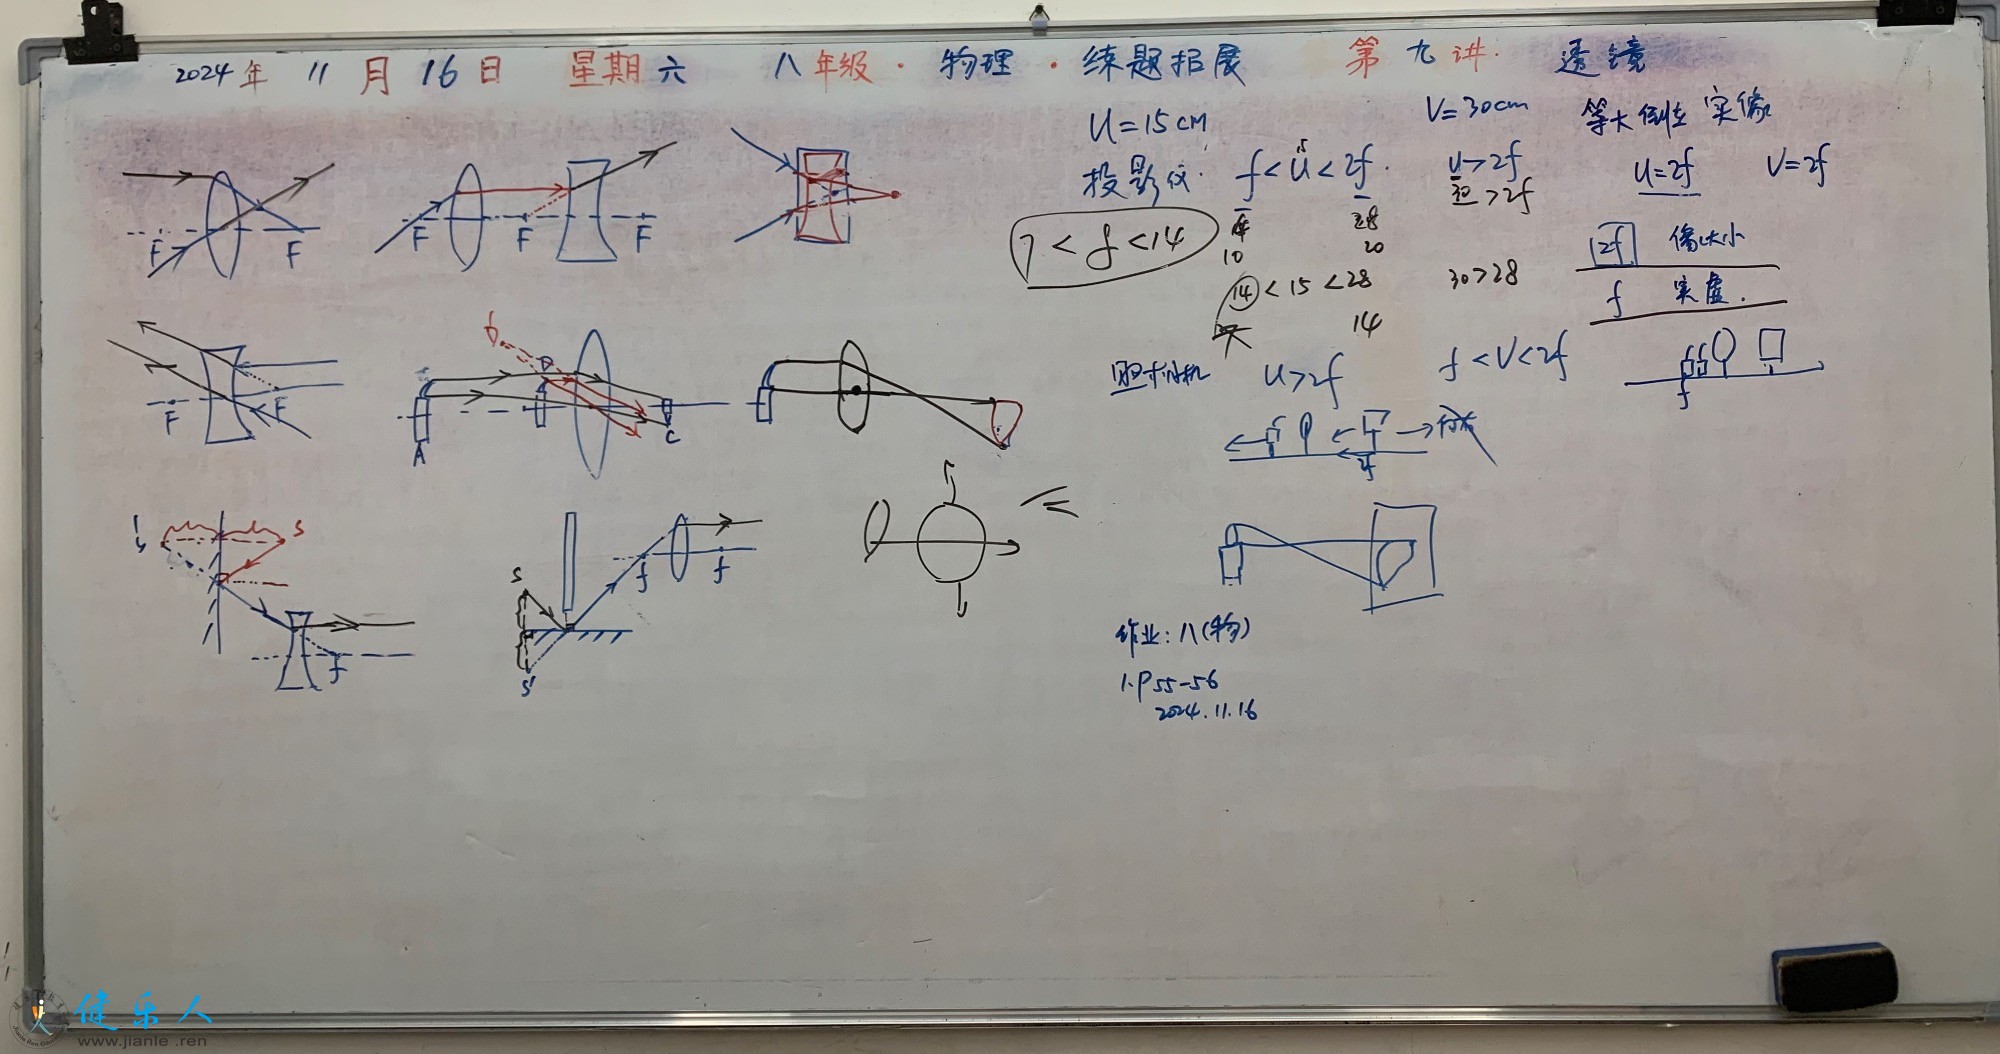 2024年 11月16日 星期六 八年级·物理·练题拓展 第九讲: 透镜
U=15cm V=30cm 等大倒立实像
投影仪: f<U<2f. U>2f U=2f V=2f
15
30>2f
7<f<14
14 28
10 20
2f 像大小
14<15<28 30>28
f 实虚.
14
照相机 U>2f f<V<2f
F F F F F
F F
A C
f
2f
S S
f f
f
S'
作业: 八(物)
1.P55-56
2024.11.16
健乐人
www.jianle.ren